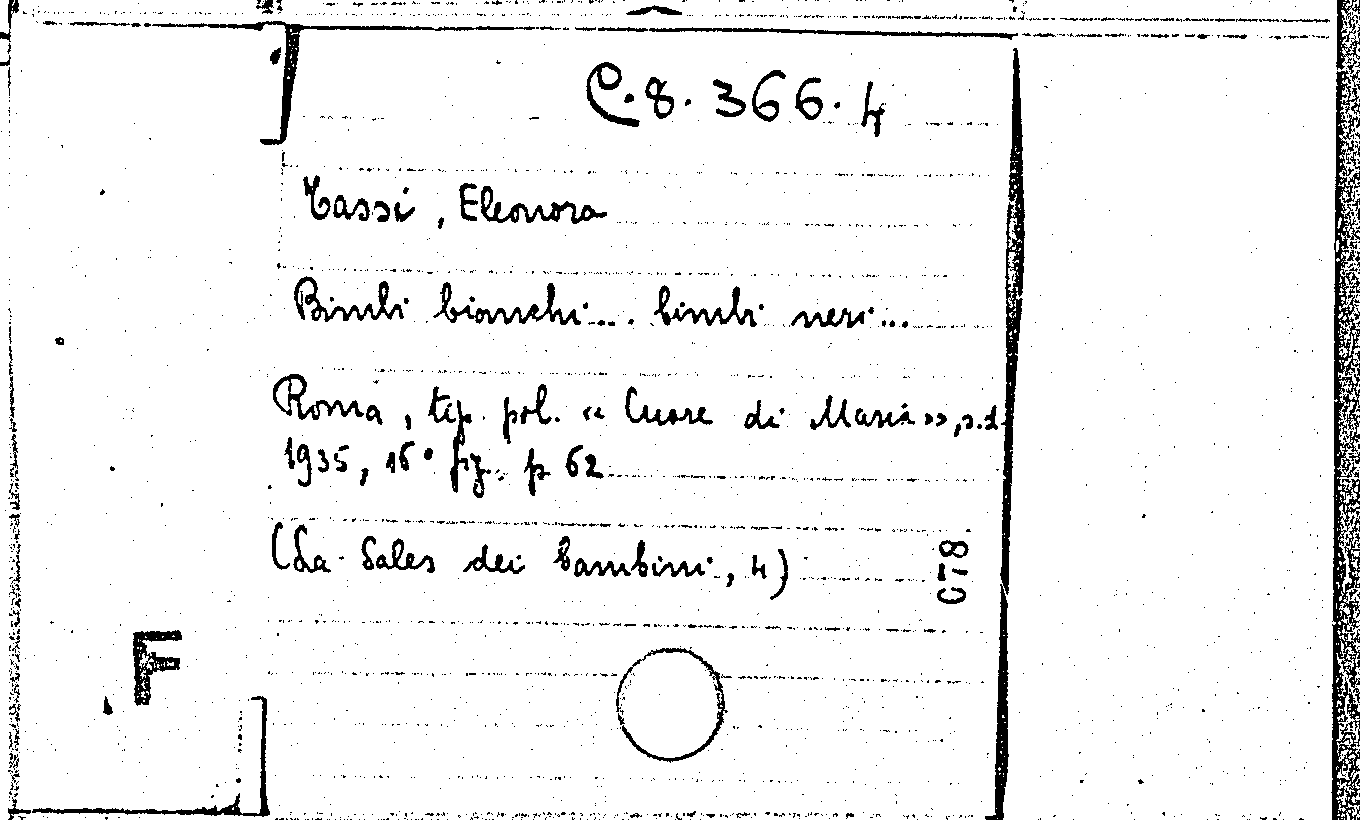 C.8.366.4
Tassi, Eleonora
Bimbi bianchi... bimbi neri...
Roma, tip. pol. « Cuore di Maria », s.d.
1935, 16° fig. p 62
(La Sales dei bambini, 4)
C78
F